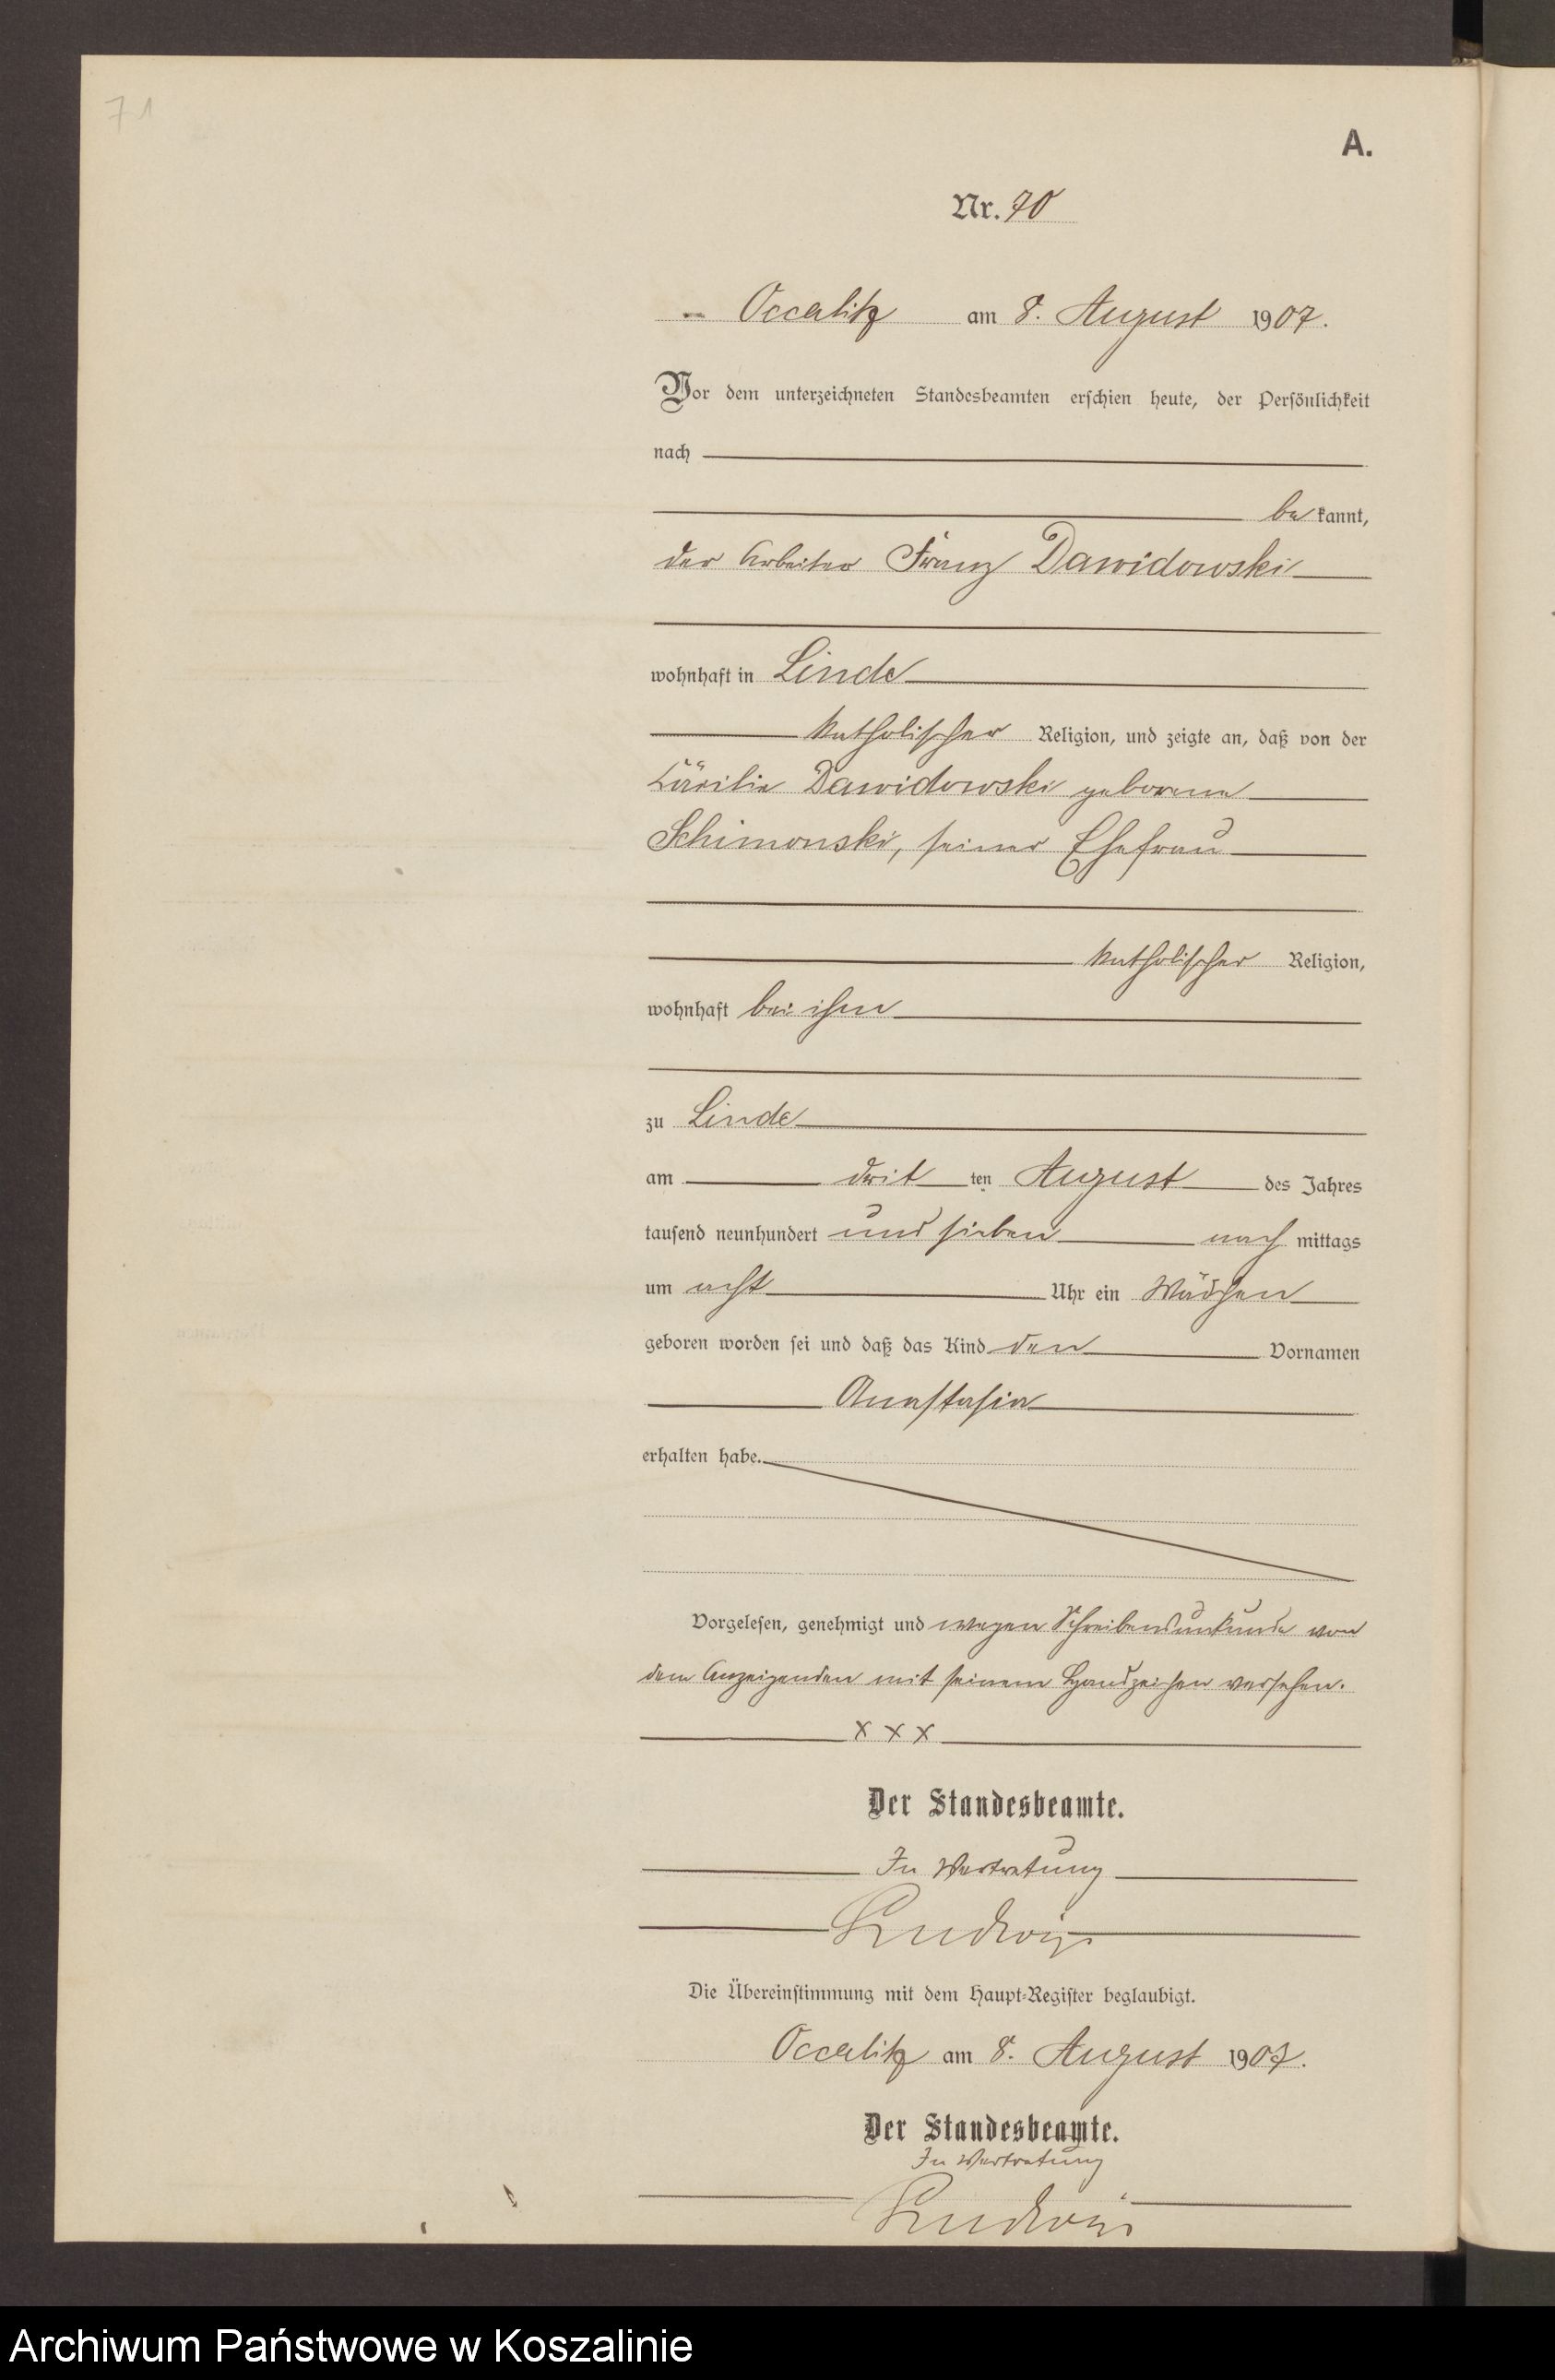 71
A.
Nr. 70
Occalitz am 8. August 1907.
Vor dem unterzeichneten Standesbeamten erschien heute, der Persönlichkeit
nach
be kannt,
der Arbeiter Franz Dawidowski
wohnhaft in Linde
katholischer Religion, und zeigte an, daß von der
Cäcilie Dawidowski geborene
Schimonski, seiner Ehefrau
katholischer Religion,
wohnhaft bei ihm
zu Linde
am dritten August des Jahres
tausend neunhundert und sieben nach mittags
um acht Uhr ein Mädchen
geboren worden sei und daß das Kind den Vornamen
Anastasia
erhalten habe.
Vorgelesen, genehmigt und wegen Schreibensunkunde von
dem Anzeigenden mit seinem Handzeichen versehen.
x x x
Der Standesbeamte.
In Vertretung
Ludwig
Die Übereinstimmung mit dem Haupt-Register beglaubigt.
Occalitz am 8. August 1907.
Der Standesbeamte.
In Vertretung
Ludwig
Archiwum Państwowe w Koszalinie